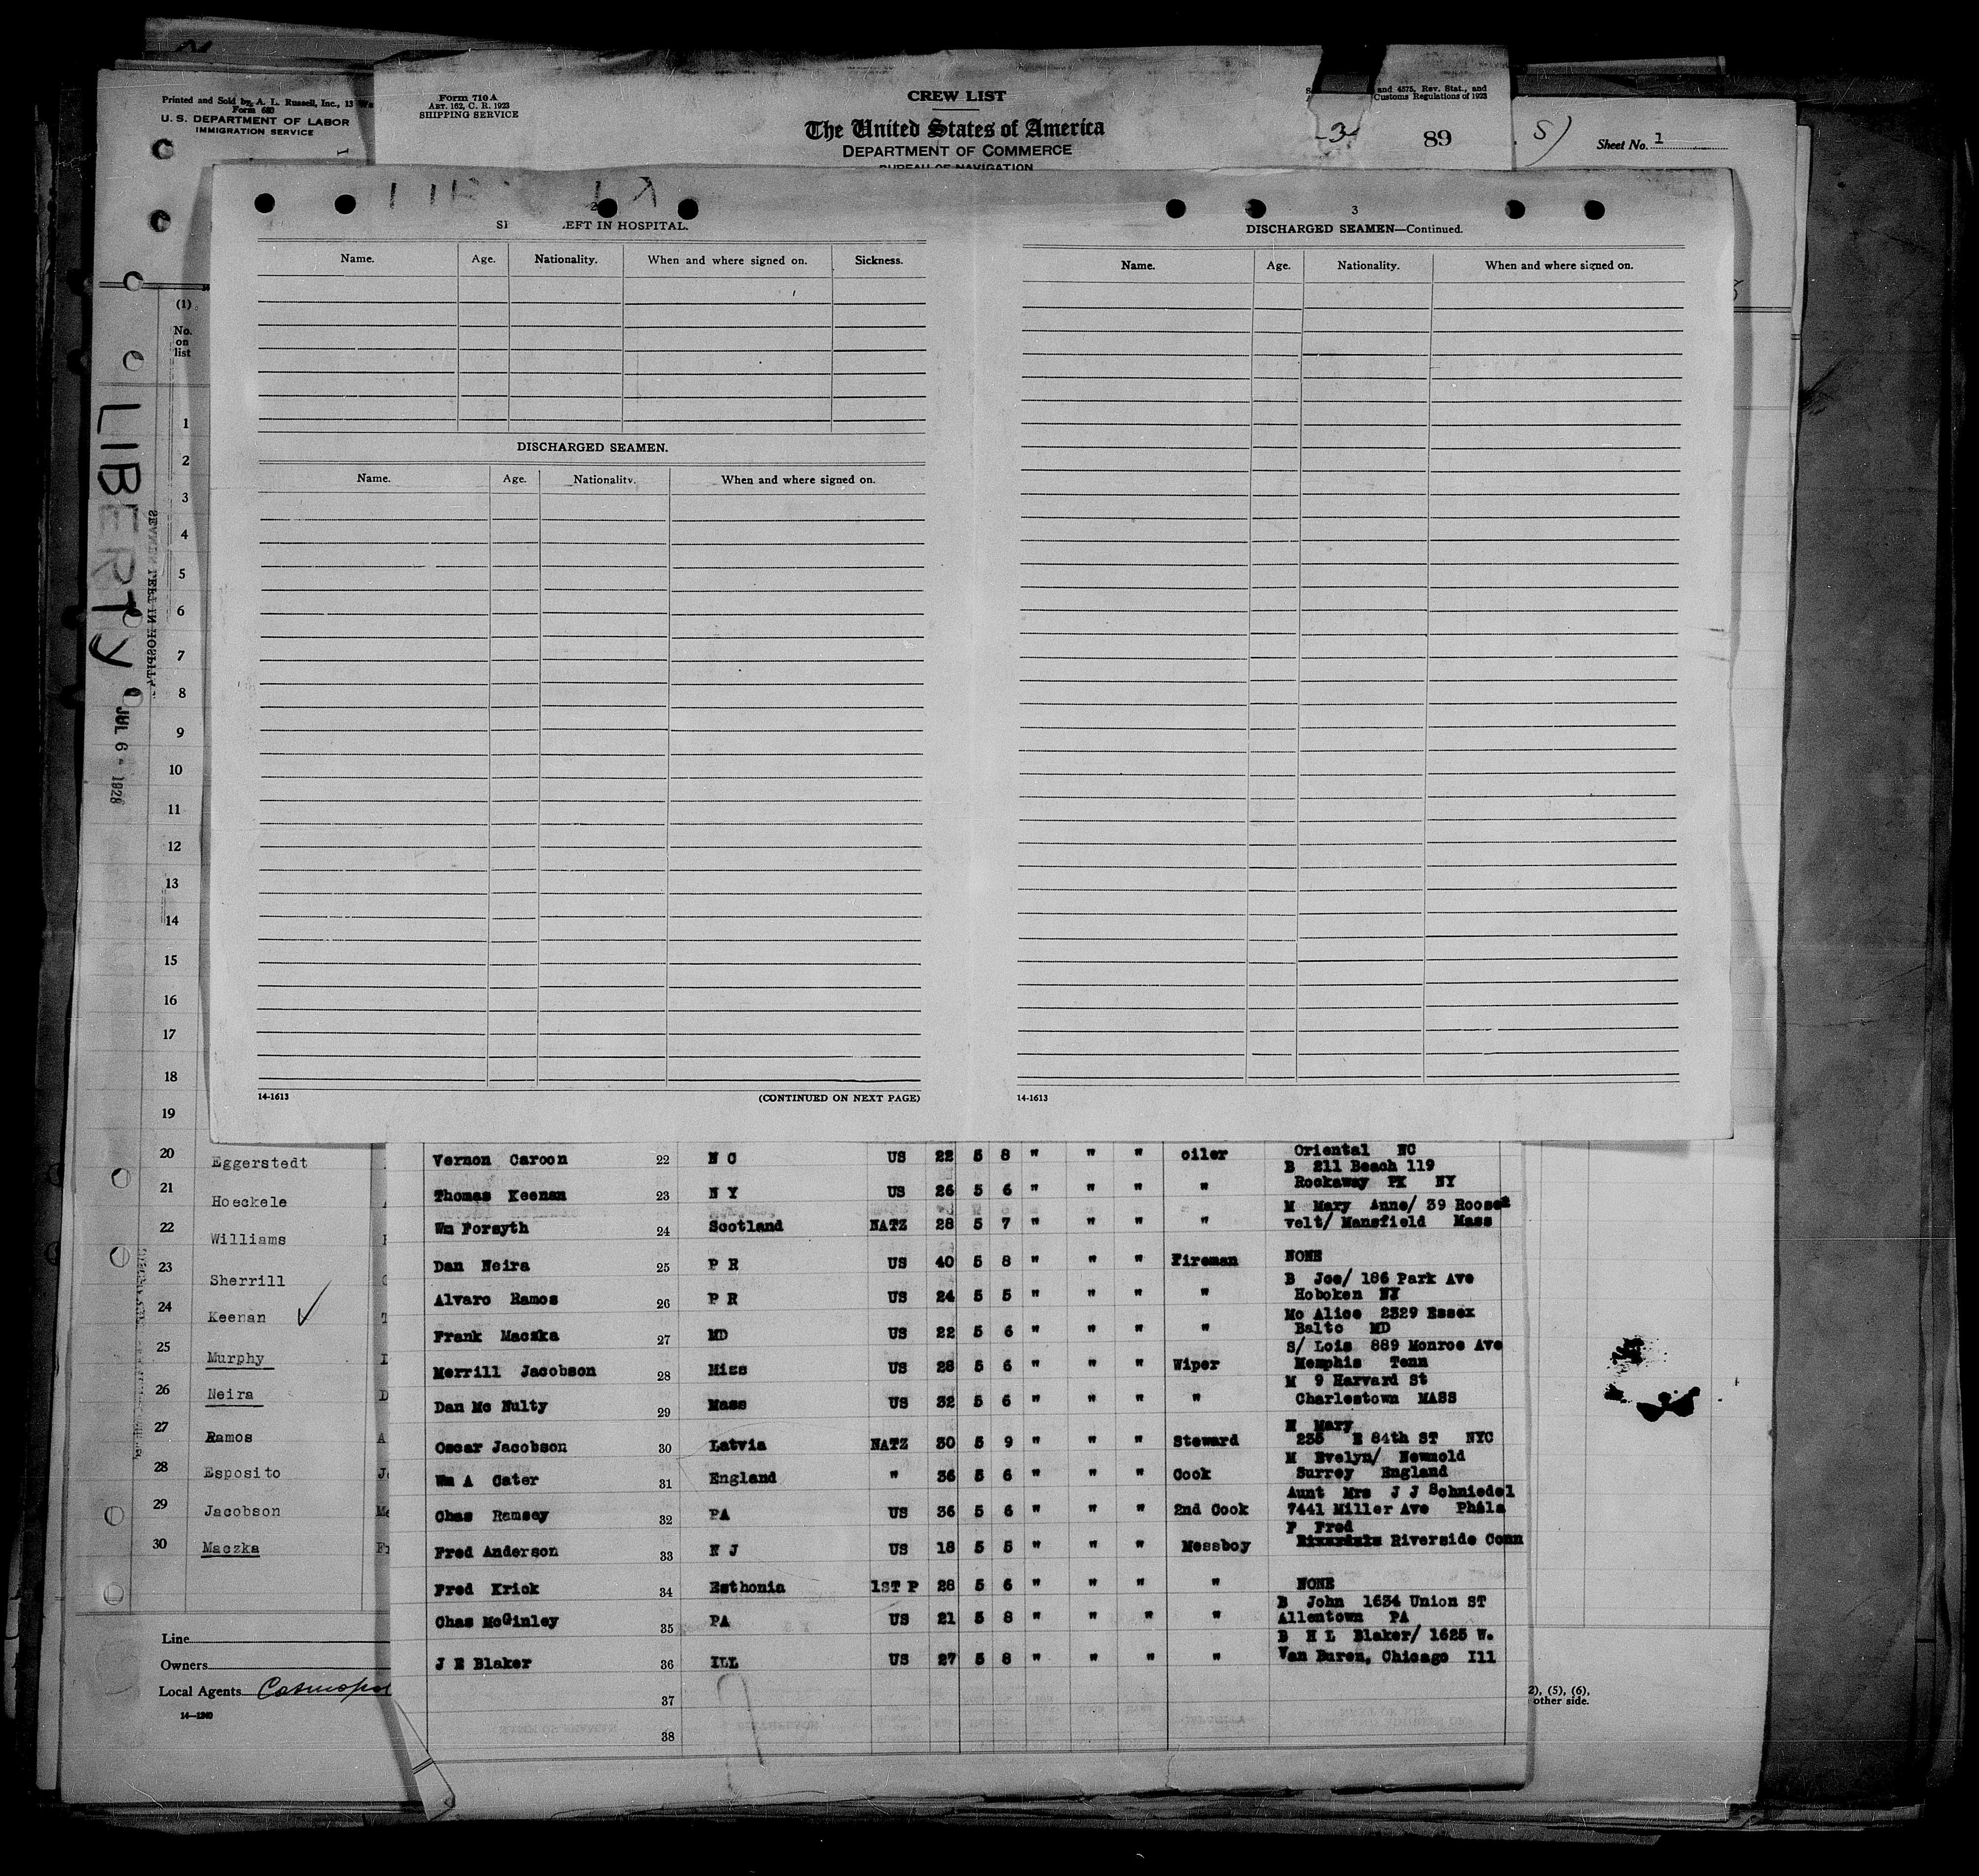 Printed and Sold by A. L. Russell, Inc., 13
Form 680
U. S. DEPARTMENT OF LABOR
IMMIGRATION SERVICE
Form 710 A
ART. 162, C. R. 1923
SHIPPING SERVICE
CREW LIST
The United States of America
DEPARTMENT OF COMMERCE
BUREAU OF NAVIGATION
and 4575, Rev. Stat., and
Customs Regulations of 1923
3
89
S)
Sheet No. 1
(1)
No.
on
list
LIBERTY
JUL 6 - 1928
2
LEFT IN HOSPITAL.
Name. Age. Nationality. When and where signed on. Sickness.
DISCHARGED SEAMEN.
Name. Age. Nationality. When and where signed on.
14-1613 (CONTINUED ON NEXT PAGE)
3
DISCHARGED SEAMEN—Continued.
Name. Age. Nationality. When and where signed on.
14-1613
1
2
3
4
5
6
7
8
9
10
11
12
13
14
15
16
17
18
19
20 Eggerstedt
21 Hoeckele
22 Williams
23 Sherrill
24 Keenan
25 Murphy
26 Neira D
27 Ramos A
28 Esposito
29 Jacobson Me
30 Maczka
Line
Owners
Local Agents
14—1240
Vernon Caroon 22 N C US 22 5 8 " " " oiler Oriental NC
B 211 Beach 119
Thomas Keenan 23 N Y US 26 5 6 " " " " Rockaway PK NY
M Mary Anne/ 39 Roose
Wm Forsyth 24 Scotland NATZ 28 5 7 " " " " velt/ Mansfield Mass
Dan Neira 25 P R US 40 5 8 " " " Fireman NONE
B Joe/ 186 Park Ave
Alvaro Ramos 26 P R US 24 5 5 " " " " Hoboken NY
Mo Alice 2329 Essex
Frank Maczka 27 MD US 22 5 6 " " " " Balto MD
S/ Lois 889 Monroe Ave
Merrill Jacobson 28 Miss US 28 5 6 " " " Wiper Memphis Tenn
M 9 Harvard St
Dan Mc Nulty 29 Mass US 32 5 6 " " " " Charlestown MASS
Mary
Oscar Jacobson 30 Latvia NATZ 30 5 9 " " " Steward 235 E 84th ST NYC
M Evelyn/ Newnold
Wm A Cater 31 England " 36 5 6 " " " Cook Surrey England
Aunt Mrs J J Schniedel
Chas Ramsey 32 PA US 36 5 6 " " " 2nd Cook 7441 Miller Ave Phila
F Fred
Fred Anderson 33 N J US 18 5 5 " " " Messboy Riverside Conn
Fred Krick 34 Esthonia 1ST P 28 5 6 " " " " NONE
B John 1634 Union ST
Chas McGinley 35 PA US 21 5 8 " " " " Allentown PA
B H L Blaker/ 1625 W.
J E Blaker 36 ILL US 27 5 8 " " " " Van Buren, Chicago Ill
37
38
2), (5), (6),
other side.